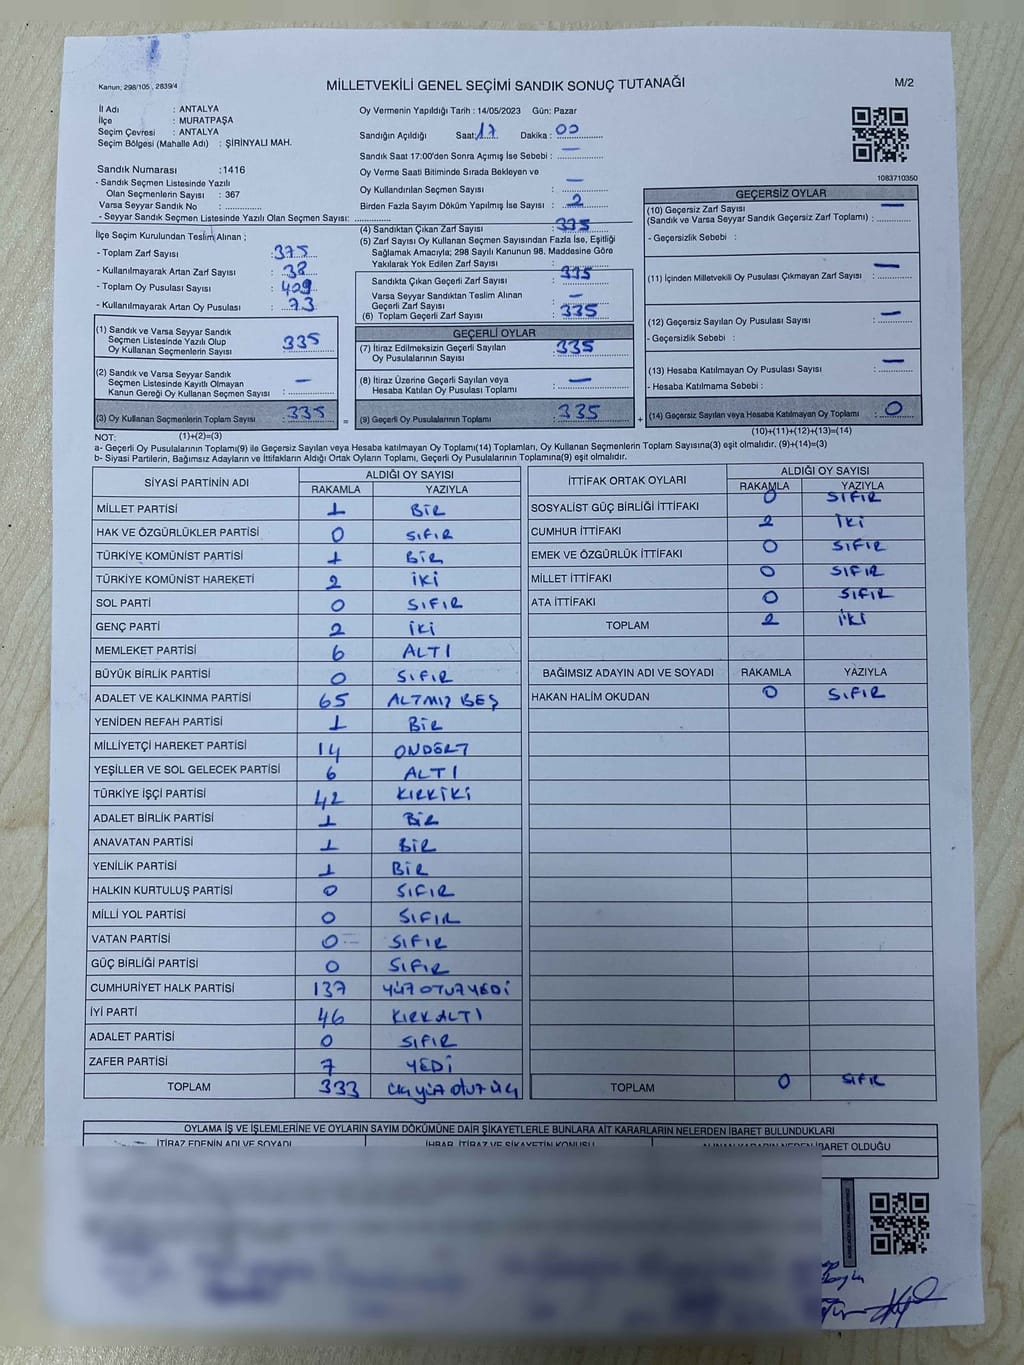 Kanun: 298/105 , 2839/4
MİLLETVEKİLİ GENEL SEÇİMİ SANDIK SONUÇ TUTANAĞI
M/2
İl Adı : ANTALYA
İlçe : MURATPAŞA
Seçim Çevresi : ANTALYA
Seçim Bölgesi (Mahalle Adı) : ŞİRİNYALI MAH.
Sandık Numarası : 1416
- Sandık Seçmen Listesinde Yazılı
Olan Seçmenlerin Sayısı : 367
Varsa Seyyar Sandık No :
- Seyyar Sandık Seçmen Listesinde Yazılı Olan Seçmen Sayısı:
Oy Vermenin Yapıldığı Tarih : 14/05/2023 Gün: Pazar
Sandığın Açıldığı Saat: 17 Dakika : 00
Sandık Saat 17:00'den Sonra Açımış İse Sebebi : —
Oy Verme Saati Bitiminde Sırada Bekleyen ve
Oy Kullandırılan Seçmen Sayısı : —
Birden Fazla Sayım Döküm Yapılmış İse Sayısı : 2
1083710350
İlçe Seçim Kurulundan Teslim Alınan ;
- Toplam Zarf Sayısı : 375
- Kullanılmayarak Artan Zarf Sayısı : 38
- Toplam Oy Pusulası Sayısı : 409
- Kullanılmayarak Artan Oy Pusulası : 73
(1) Sandık ve Varsa Seyyar Sandık
Seçmen Listesinde Yazılı Olup
Oy Kullanan Seçmenlerin Sayısı : 335
(2) Sandık ve Varsa Seyyar Sandık
Seçmen Listesinde Kayıtlı Olmayan
Kanun Gereği Oy Kullanan Seçmen Sayısı : —
(3) Oy Kullanan Seçmenlerin Toplam Sayısı : 335
(4) Sandıktan Çıkan Zarf Sayısı : 335
(5) Zarf Sayısı Oy Kullanan Seçmen Sayısından Fazla İse, Eşitliği
Sağlamak Amacıyla; 298 Sayılı Kanunun 98. Maddesine Göre
Yakılarak Yok Edilen Zarf Sayısı :
Sandıkta Çıkan Geçerli Zarf Sayısı : 335
Varsa Seyyar Sandıktan Teslim Alınan
Geçerli Zarf Sayısı : —
(6) Toplam Geçerli Zarf Sayısı : 335
GEÇERLİ OYLAR
(7) İtiraz Edilmeksizin Geçerli Sayılan
Oy Pusulalarının Sayısı : 335
(8) İtiraz Üzerine Geçerli Sayılan veya
Hesaba Katılan Oy Pusulası Toplamı : —
= (9) Geçerli Oy Pusulalarının Toplamı : 335 +
GEÇERSİZ OYLAR
(10) Geçersiz Zarf Sayısı —
(Sandık ve Varsa Seyyar Sandık Geçersiz Zarf Toplamı) :
- Geçersizlik Sebebi :
(11) İçinden Milletvekili Oy Pusulası Çıkmayan Zarf Sayısı : —
(12) Geçersiz Sayılan Oy Pusulası Sayısı : —
- Geçersizlik Sebebi :
(13) Hesaba Katılmayan Oy Pusulası Sayısı : —
- Hesaba Katılmama Sebebi :
(14) Geçersiz Sayılan veya Hesaba Katılmayan Oy Toplamı : 0
NOT: (1)+(2)=(3)
(10)+(11)+(12)+(13)=(14)
a- Geçerli Oy Pusulalarının Toplamı(9) ile Geçersiz Sayılan veya Hesaba katılmayan Oy Toplamı(14) Toplamları, Oy Kullanan Seçmenlerin Toplam Sayısına(3) eşit olmalıdır. (9)+(14)=(3)
b- Siyasi Partilerin, Bağımsız Adayların ve İttifakların Aldığı Ortak Oyların Toplamı, Geçerli Oy Pusulalarının Toplamına(9) eşit olmalıdır.
SİYASİ PARTİNİN ADI ALDIĞI OY SAYISI
RAKAMLA YAZIYLA
MİLLET PARTİSİ 1 BİR
HAK VE ÖZGÜRLÜKLER PARTİSİ 0 SIFIR
TÜRKİYE KOMÜNİST PARTİSİ 1 BİR
TÜRKİYE KOMÜNİST HAREKETİ 2 İKİ
SOL PARTİ 0 SIFIR
GENÇ PARTİ 2 İKİ
MEMLEKET PARTİSİ 6 ALTI
BÜYÜK BİRLİK PARTİSİ 0 SIFIR
ADALET VE KALKINMA PARTİSİ 65 ALTMIŞ BEŞ
YENİDEN REFAH PARTİSİ 1 BİR
MİLLİYETÇİ HAREKET PARTİSİ 14 ONDÖRT
YEŞİLLER VE SOL GELECEK PARTİSİ 6 ALTI
TÜRKİYE İŞÇİ PARTİSİ 42 KIRKİKİ
ADALET BİRLİK PARTİSİ 1 BİR
ANAVATAN PARTİSİ 1 BİR
YENİLİK PARTİSİ 1 BİR
HALKIN KURTULUŞ PARTİSİ 0 SIFIR
MİLLİ YOL PARTİSİ 0 SIFIR
VATAN PARTİSİ 0 SIFIR
GÜÇ BİRLİĞİ PARTİSİ 0 SIFIR
CUMHURİYET HALK PARTİSİ 137 YÜZ OTUZ YEDİ
İYİ PARTİ 46 KIRKALTI
ADALET PARTİSİ 0 SIFIR
ZAFER PARTİSİ 7 YEDİ
TOPLAM 333 ÜÇ YÜZ OTUZ ÜÇ
İTTİFAK ORTAK OYLARI ALDIĞI OY SAYISI
RAKAMLA YAZIYLA
SOSYALİST GÜÇ BİRLİĞİ İTTİFAKI 0 SIFIR
CUMHUR İTTİFAKI 2 İKİ
EMEK VE ÖZGÜRLÜK İTTİFAKI 0 SIFIR
MİLLET İTTİFAKI 0 SIFIR
ATA İTTİFAKI 0 SIFIR
TOPLAM 2 İKİ
BAĞIMSIZ ADAYIN ADI VE SOYADI RAKAMLA YAZIYLA
HAKAN HALİM OKUDAN 0 SIFIR
TOPLAM 0 SIFIR
OYLAMA İŞ VE İŞLEMLERİNE VE OYLARIN SAYIM DÖKÜMÜNE DAİR ŞİKAYETLERLE BUNLARA AİT KARARLARIN NELERDEN İBARET BULUNDUKLARI
İTİRAZ EDENİN ADI VE SOYADI İHBAR, İTİRAZ VE ŞİKAYETİN KONUSU ALINAN KARARIN NEDEN İBARET OLDUĞU